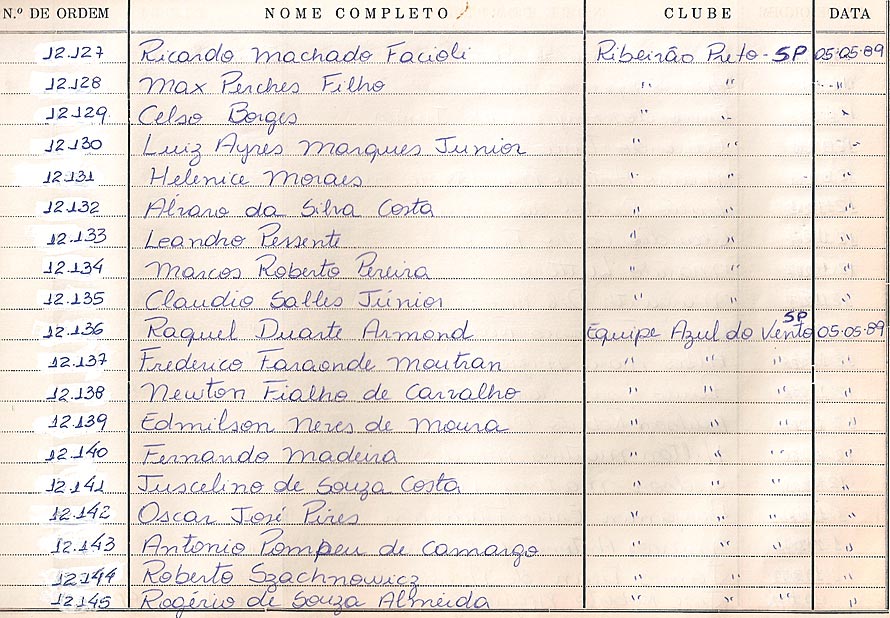 N.º DE ORDEM NOME COMPLETO CLUBE DATA
12.127 Ricardo Machado Facioli Ribeirão Preto - SP 05.05.89
12.128 Max Perches Filho " " "
12.129 Celso Borges " " "
12.130 Luiz Ayres Marques Junior " " "
12.131 Helenice Moraes " " "
12.132 Alvaro da Silva Costa " " "
12.133 Leandro Pessente " " "
12.134 Marcos Roberto Pereira " " "
12.135 Claudio Salles Júnior " " "
12.136 Raquel Duarte Armond Equipe Azul do Vento SP 05.05.89
12.137 Frederico Faraonde Moutran " " " "
12.138 Newton Fialho de Carvalho " " " "
12.139 Edmilson Neres de Moura " " " "
12.140 Fernando Madeira " " " "
12.141 Juscelino de Souza Costa " " " "
12.142 Oscar José Pires " " " "
12.143 Antonio Pompeu de Camargo " " " "
12.144 Roberto Szachnowicz " " " "
12.145 Rogério de Souza Almeida " " " "